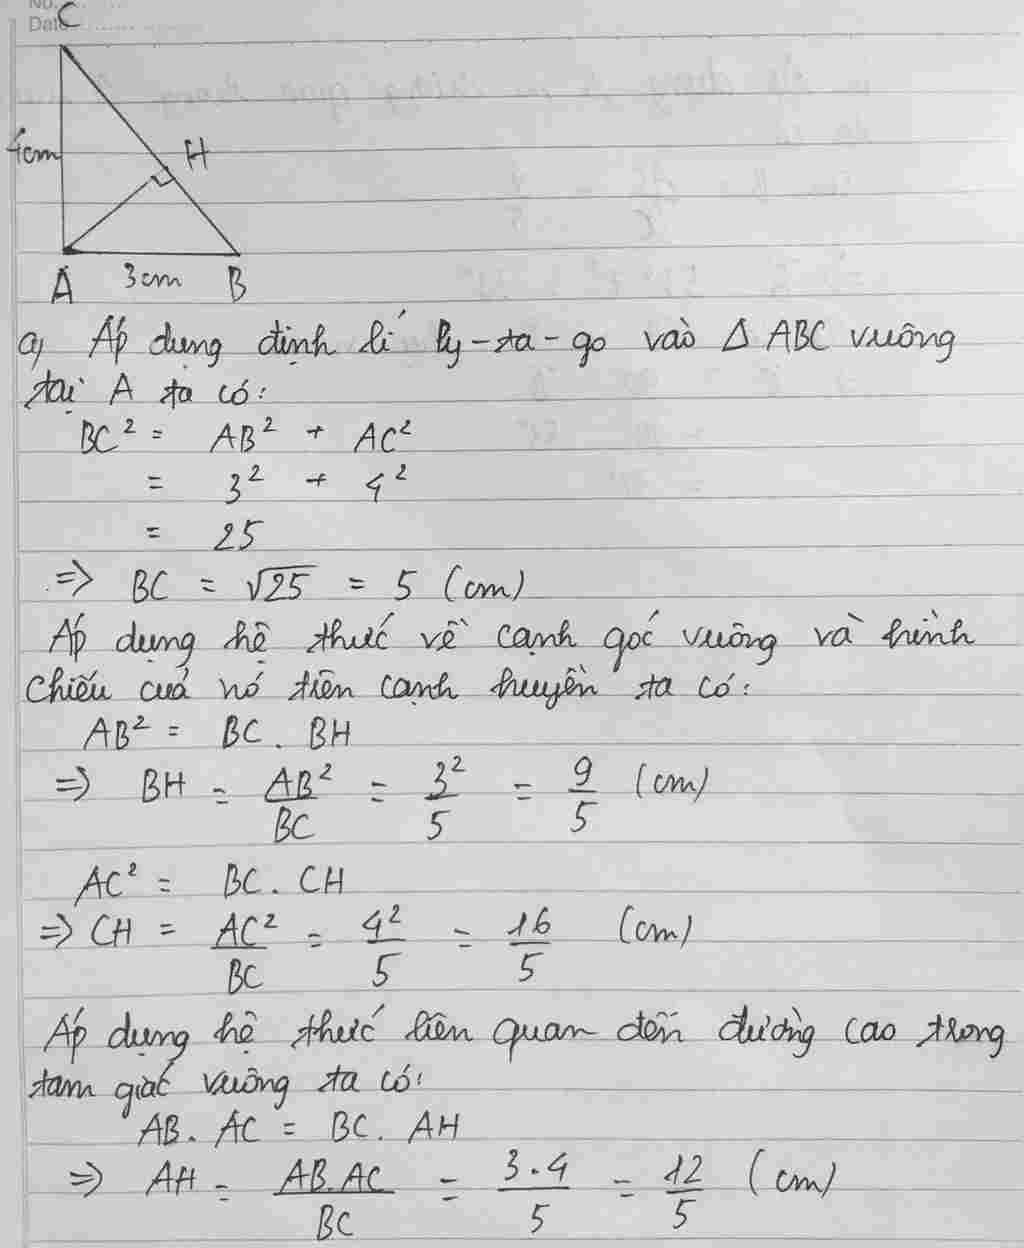 No.
Date
C
4cm
H
A
3cm
B
a) Áp dụng định lí Py-ta-go vào Δ ABC vuông
tại A ta có:
BC² = AB² + AC²
= 3² + 4²
= 25
=> BC = √25 = 5 (cm)
Áp dụng hệ thức về cạnh góc vuông và hình
chiếu của nó trên cạnh huyền ta có:
AB² = BC . BH
=> BH = AB²/BC = 3²/5 = 9/5 (cm)
AC² = BC . CH
=> CH = AC²/BC = 4²/5 = 16/5 (cm)
Áp dụng hệ thức liên quan đến đường cao trong
tam giác vuông ta có:
AB . AC = BC . AH
=> AH = AB.AC/BC = 3.4/5 = 12/5 (cm)